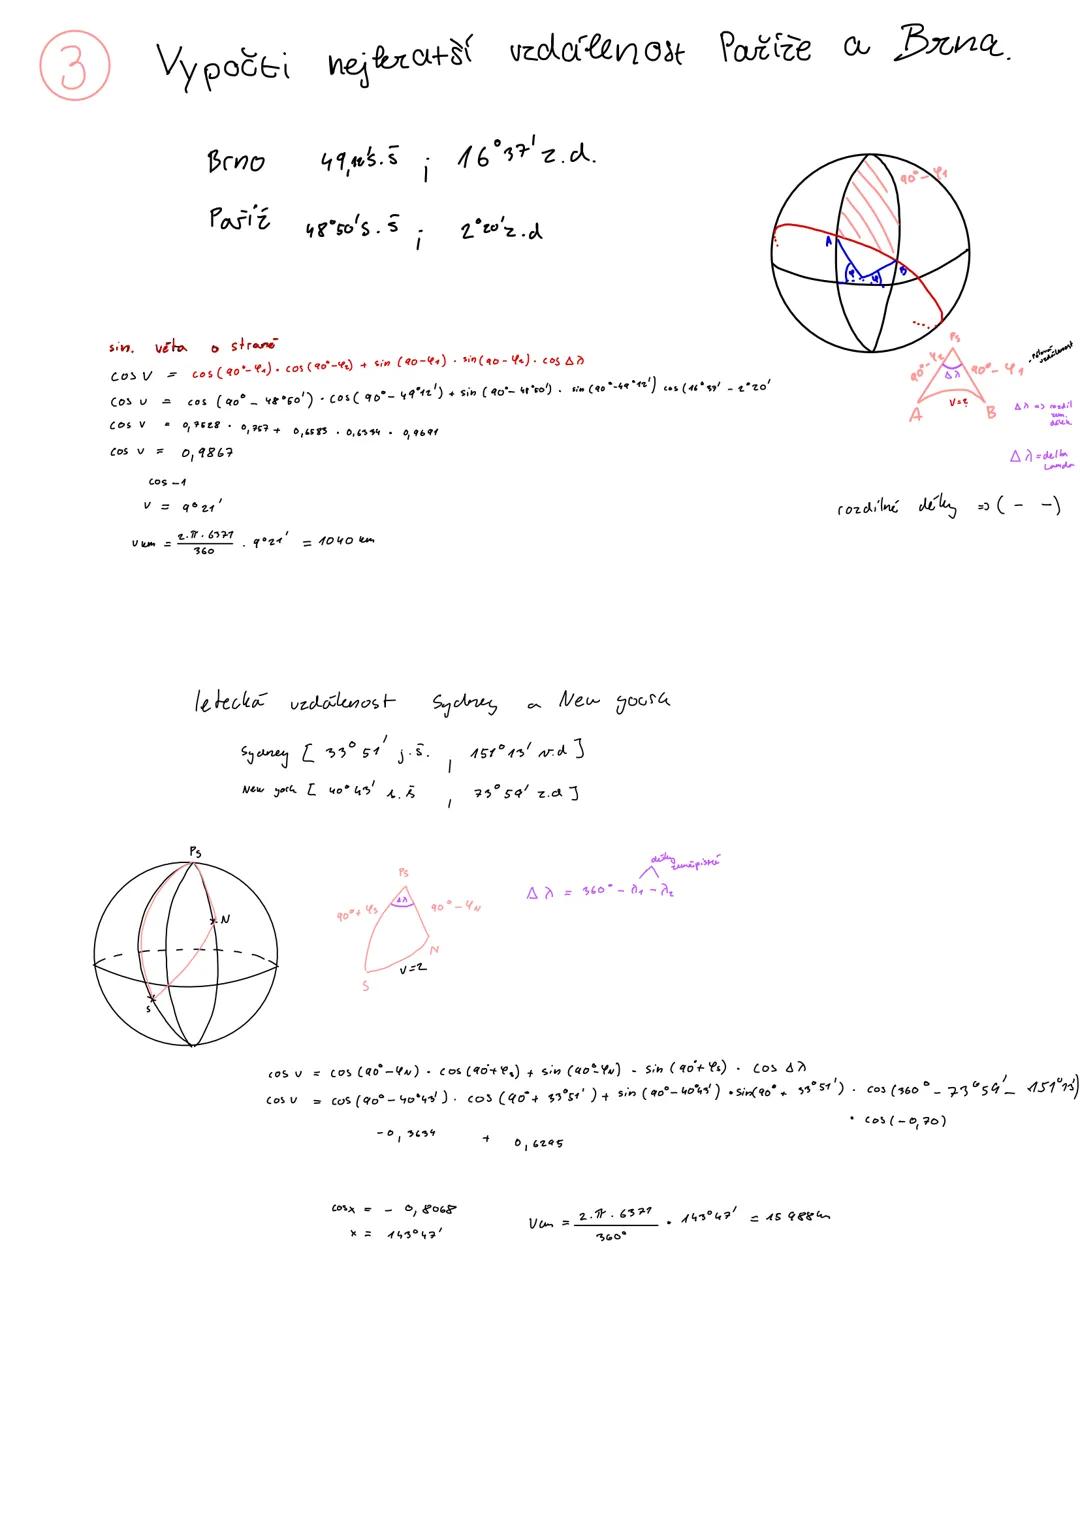 3 Vypočti nejkratší vzdálenost Paříže a Brna.
Brno 49,12's.š ; 16°37' z.d.
Paříž 48°50's.š ; 2°20' z.d
90°-φ1
A
B
φ φ
sin. věta o straně
cos v = cos(90°-φ1) · cos(90°-φ2) + sin (90-φ1) · sin(90-φ2) · cos Δλ
cos v = cos (90° - 48°50') · cos(90° - 49°12') + sin (90°-48°50') · sin (90°-49°12') cos (16°37' - 2°20'
cos v = 0,7528 · 0,757 + 0,6583 · 0,6534 · 0,9691
cos v = 0,9867
cos -1
v = 9°21'
v km = 2·π·6371 / 360 · 9°21' = 1040 km
Ps
90°-φ2
90°-φ1
Δλ
v=?
A
B
Δλ => rozdíl zem. délek
Δλ = delta
rozdílné délky => ( - -)
letecká vzdálenost Sydney a New yourk
Sydney [ 33°51' j.š. , 151°13' v.d ]
New york [ 40°43' s.š , 73°59' z.d ]
Ps
N
S
Ps
Δλ
90°+φs
90°-φN
N
S
v=?
délky zeměpisné
Δλ = 360° - λ1 - λ2
cos v = cos (90°-φN) · cos (90°+φs) + sin (90°-φN) · sin (90°+φs) · cos Δλ
cos v = cos (90°-40°43') · cos (90°+ 33°51') + sin (90°-40°43') · sin(90° + 33°51') · cos (360° - 73°59' - 151°13')
· cos(-0,70)
-0,3634 + 0,6295
cosx = - 0,8068
x = 143°47'
v km = 2·π·6371 / 360° · 143°47' = 15 988km